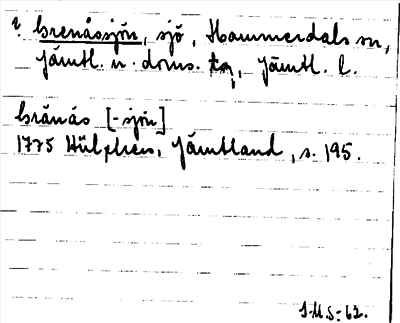 ? Grenåssjön, sjö, Hammerdals sn,
Jämtl. n. doms. tg, Jämtl. l.
Gränås [-sjön]
1775 Hülphers, Jämtland, s. 195.
I.M.S:62.